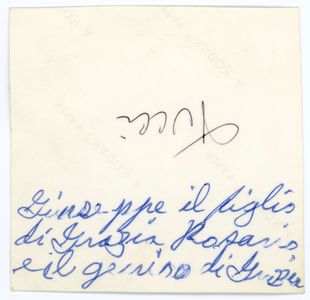 A KODAK PAPER
Tucci
Giuseppe il figlio
di Grazia Rosario
e il genero di Grazia